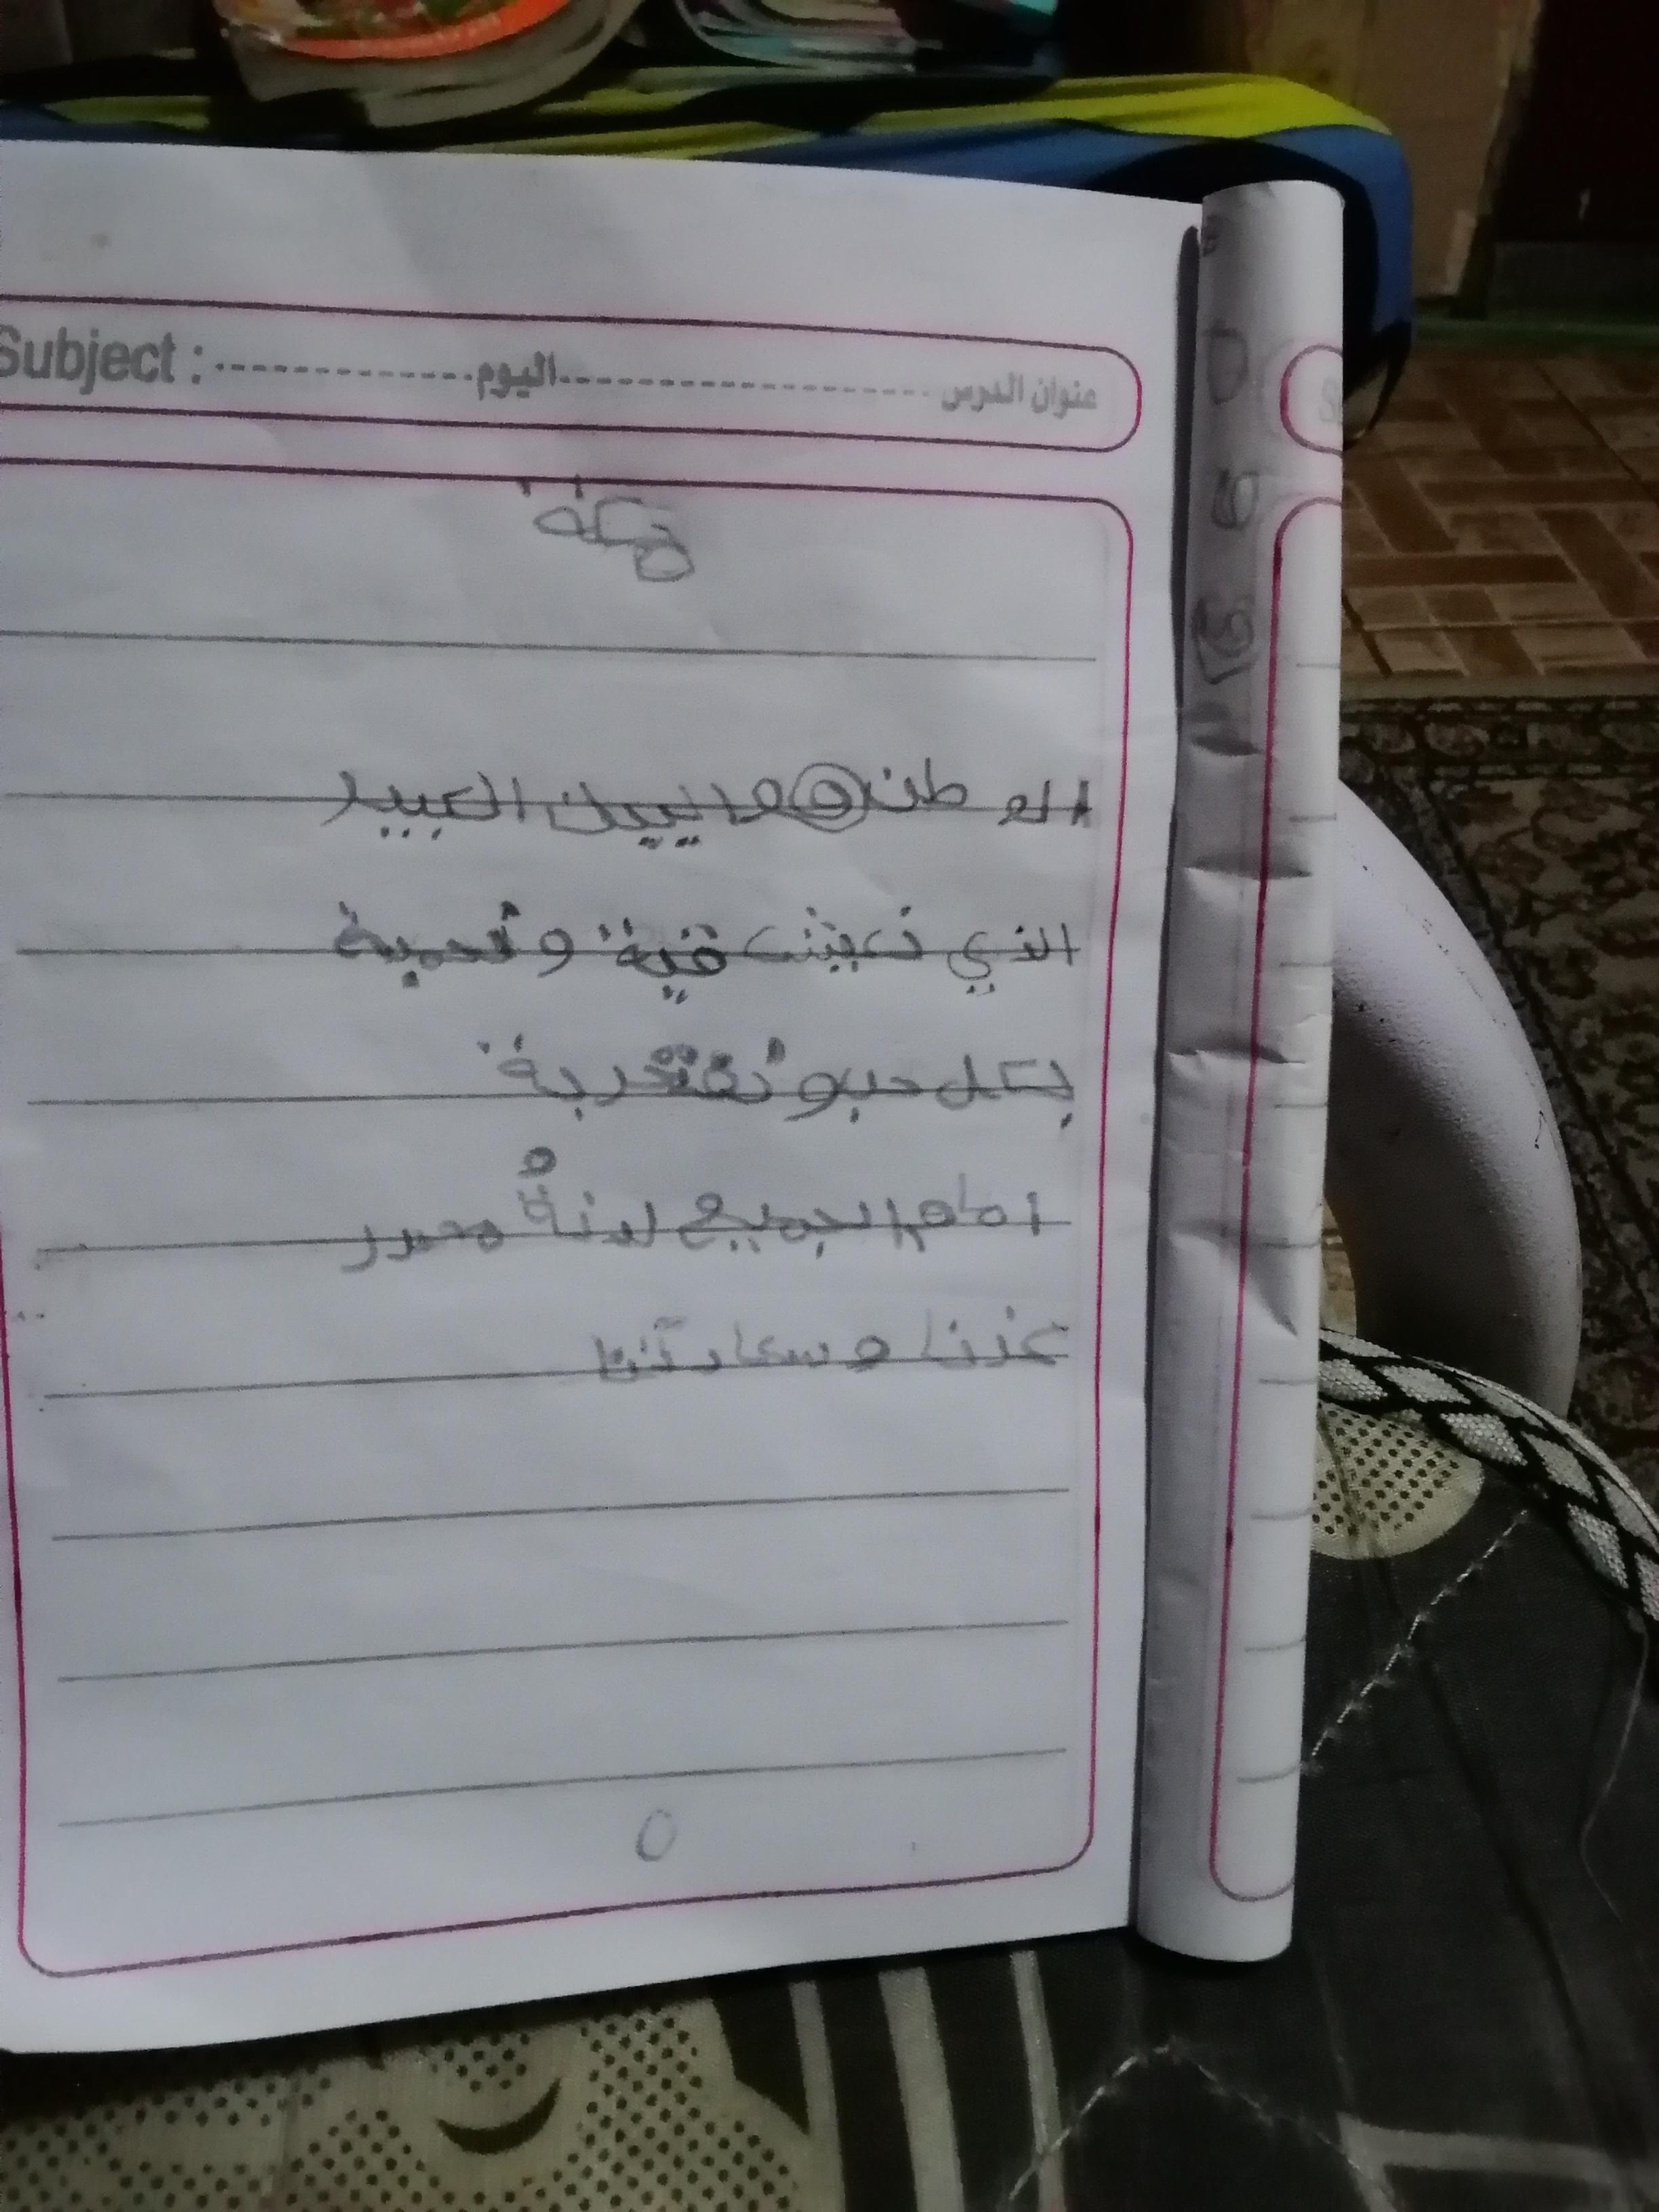 Subject : اليوم عنوان الدرس
الو طن و البيت الكبير
الذي نعيش فية و نحمية
بكل حب و نفتخر بة
امام الجميع لانة مصدر
عزنا و سعادتنا